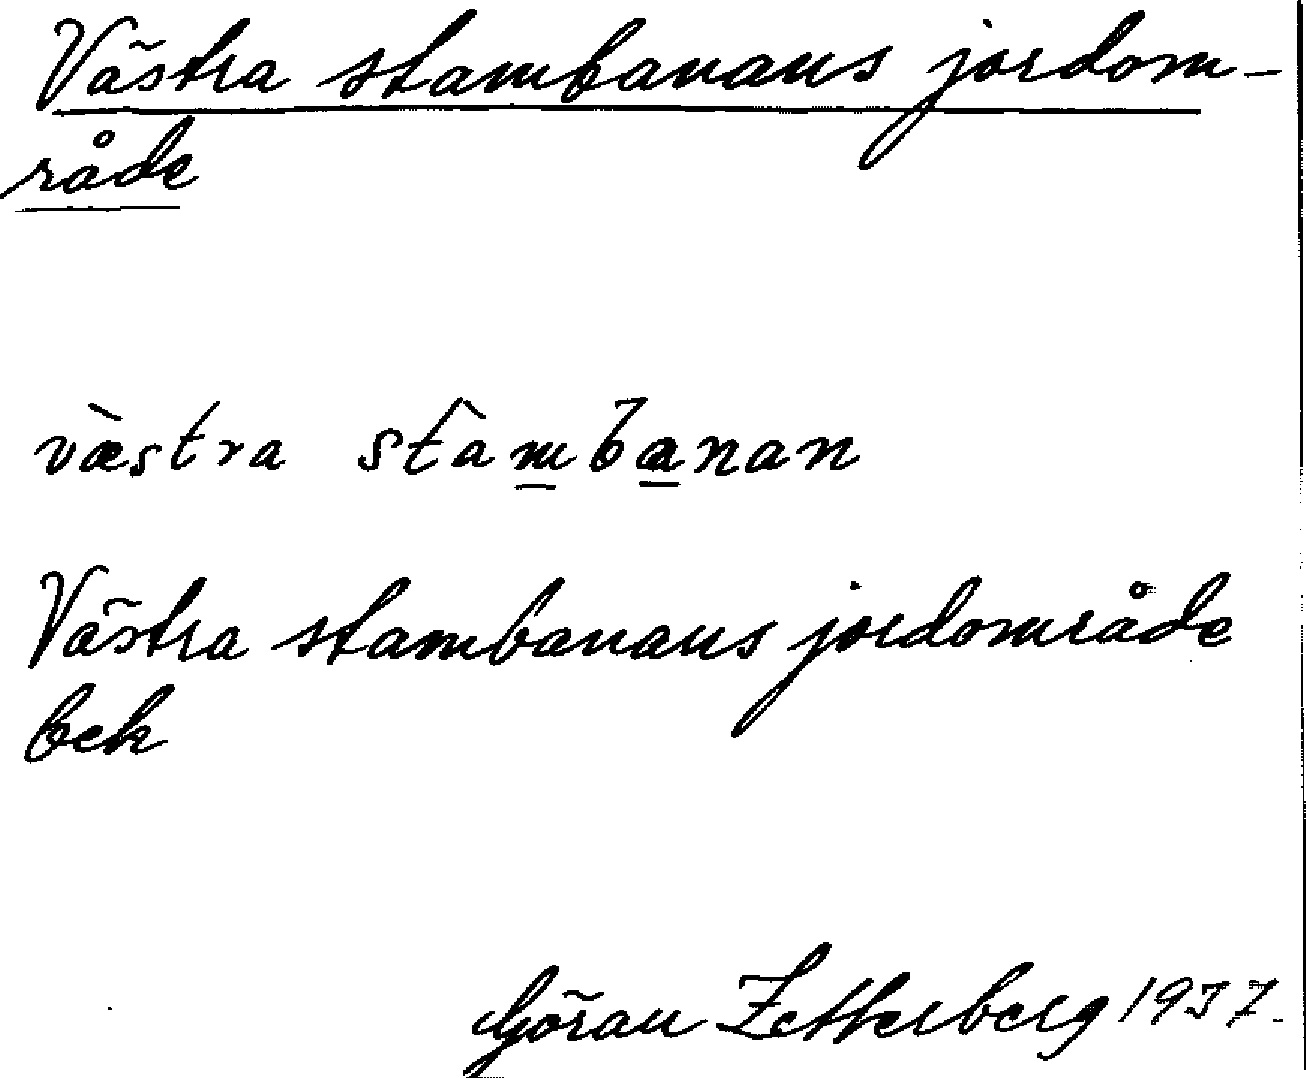 Västra stambanans jordom-
råde
vàstra stàmbanan
Västra stambanans jordområde
bek
Göran Zetterberg 1937.